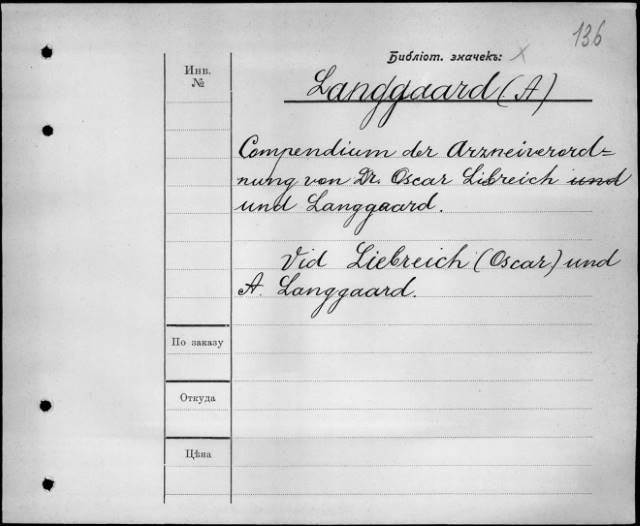 136
Библіот. значекъ: x
Инв.
№
Langgaard (A)
Compendium der Arzneiverord=
nung von Dr. Oscar Libreich und
und Langgaard.
Vid Liebreich (Oscar) und
A. Langgaard.
По заказу
Откуда
Цѣна